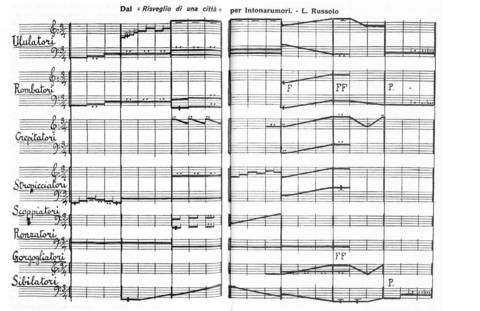 Dal « Risveglio di una città » per Intonarumori. - L. Russolo
Ululatori
Rombatori
F FF P.
Crepitatori
Stropicciatori
Scoppiatori
Ronzatori
Gorgogliatori
FF
Sibilatori
P.